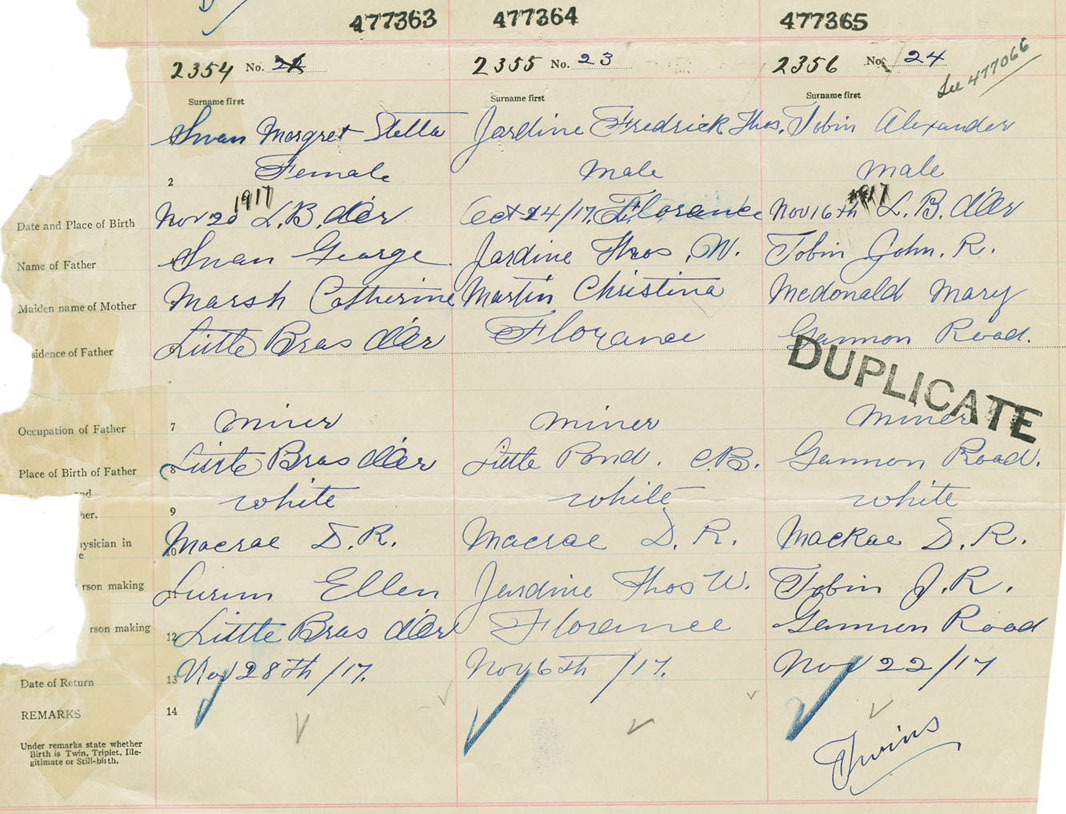 477363 477364 477365
2354 No. 22 2355 No. 23 2356 No. 24 See 477066
Surname first Surname first Surname first
Swan Margret Stella Jardine Fredrick Thos. Tobin Alexander
2 Female male male
Date and Place of Birth Nov 20 1917 L.B. d'Or Oct 24/17, Florance Nov 16th 1917 L.B. d'Or
Name of Father Swan George Jardine Thos W. Tobin John. R.
Maiden name of Mother Marsh Catherine Martin Christina Mcdonald Mary
sidence of Father Little Bras d'Or Florance Gannon Road.
DUPLICATE
Occupation of Father 7 miner miner miner
Place of Birth of Father 8 Little Bras d'Or Little Pond. C.B. Gannon Road.
nd
her. 9 white white white
ysician in
e 10 Macrae D.R. Macrae D.R. MacRae D.R.
rson making 11 Ellen Jardine Thos W. Tobin J.R.
rson making 12 Little Bras d'Or Florance Gannon Road
Date of Return 13 Nov 28th/17. Nov 6th/17. Nov 22/17
REMARKS 14
Under remarks state whether
Birth is Twin, Triplet, Ille-
gitimate or Still-birth.
Twins